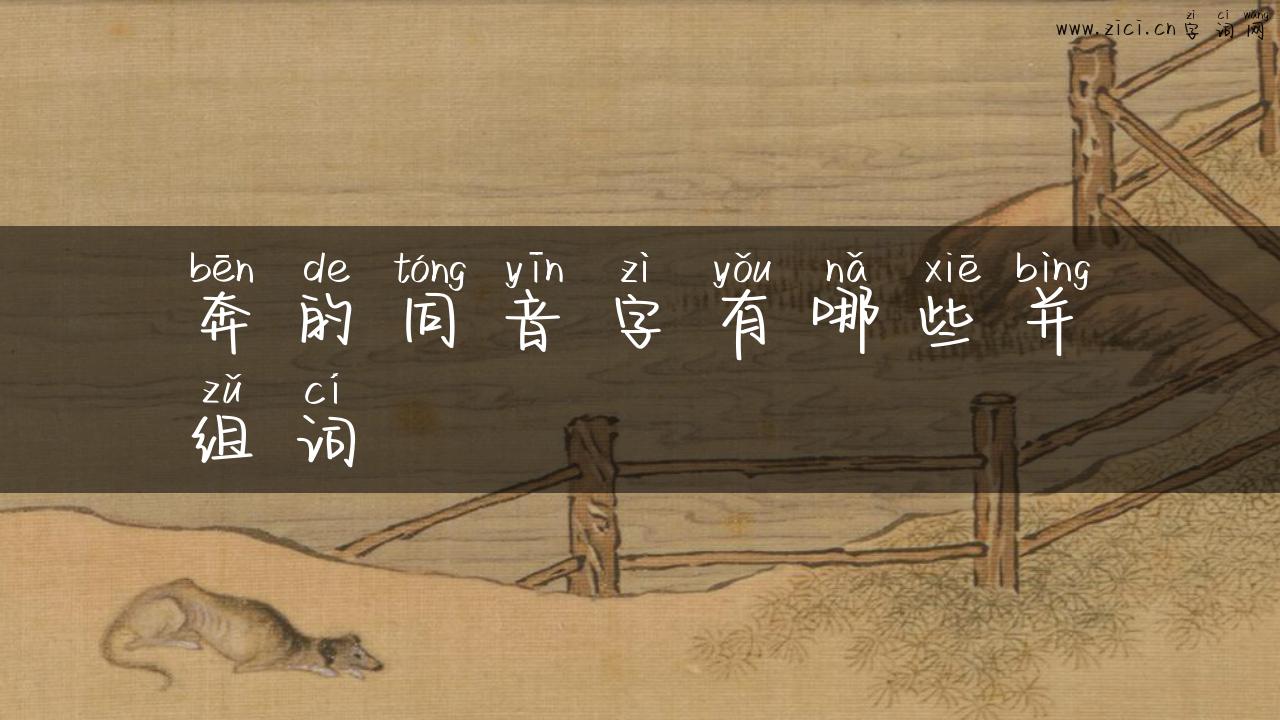 zi ci wang
www.zici.cn字词网
bēn de tóng yīn zì yǒu nǎ xiē bìng
奔的同音字有哪些并
zǔ cí
组词